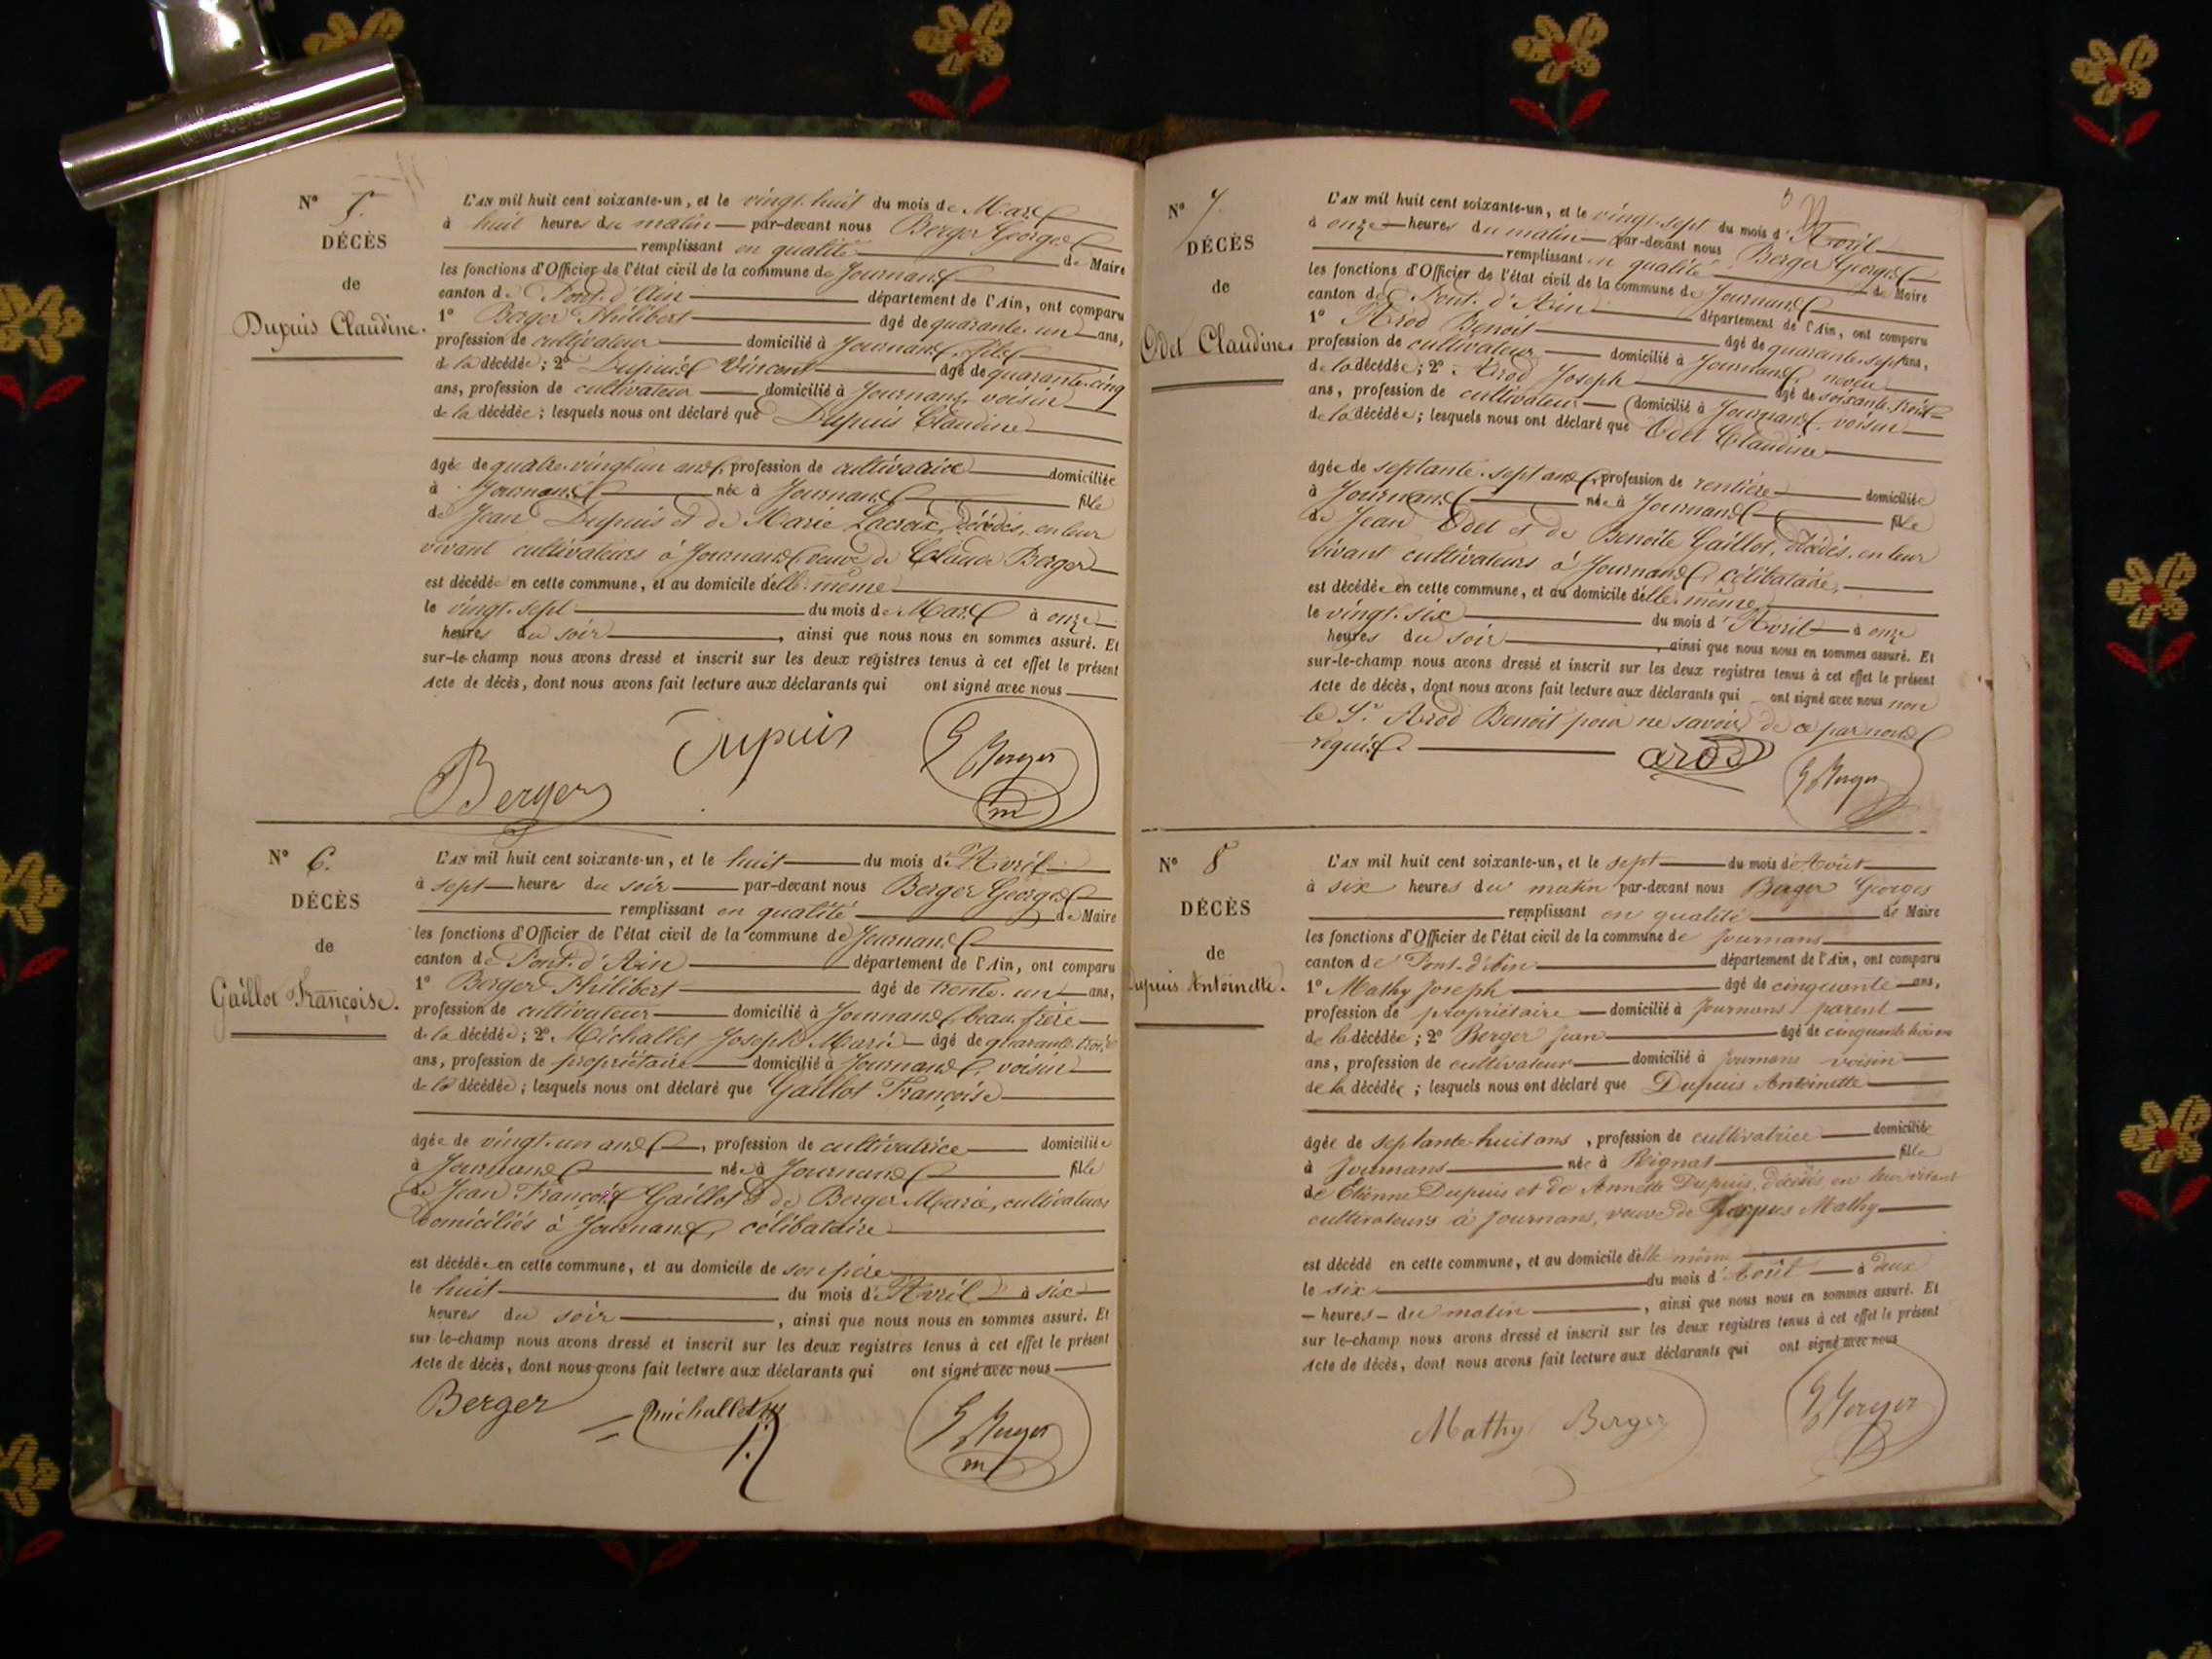 Nº 5.
DÉCÈS
de
Dupuis Claudine.
L'AN mil huit cent soixante-un, et le vingt-huit du mois de Mars
à huit heures du matin par-devant nous Berger Georges
remplissant en qualité de Maire
les fonctions d'Officier de l'état civil de la commune de Journans
canton de Pont-d'Ain département de l'Ain, ont comparu
1º Berger Philibert âgé de quarante-un ans,
profession de cultivateur domicilié à Journans, fils
de la décédée; 2º Dupuis Vincent âgé de quarante-cinq
ans, profession de cultivateur domicilié à Journans, voisin
de la décédée; lesquels nous ont déclaré que Dupuis Claudine
âgée de quatre-vingt-un ans, profession de cultivatrice domiciliée
à Journans née à Journans fille
de Jean Dupuis et de Marie Lacroix, décédés, en leur
vivant cultivateurs à Journans, veuve de Claude Berger
est décédée en cette commune, et au domicile d'elle-même
le vingt-sept du mois de Mars à onze
heures du soir, ainsi que nous nous en sommes assuré. Et
sur-le-champ nous avons dressé et inscrit sur les deux registres tenus à cet effet le présent
Acte de décès, dont nous avons fait lecture aux déclarants qui ont signé avec nous
Berger Dupuis G Berger
m
Nº 6.
DÉCÈS
de
Gaillot Françoise.
L'AN mil huit cent soixante-un, et le huit du mois d'Avril
à sept heures du soir par-devant nous Berger Georges
remplissant en qualité de Maire
les fonctions d'Officier de l'état civil de la commune de Journans
canton de Pont-d'Ain département de l'Ain, ont comparu
1º Berger Philibert âgé de trente-un ans,
profession de cultivateur domicilié à Journans, beau-frère
de la décédée; 2º Michallet Joseph Marie âgé de quarante-trois
ans, profession de propriétaire domicilié à Journans, voisin
de la décédée; lesquels nous ont déclaré que Gaillot Françoise
âgée de vingt-un ans, profession de cultivatrice domiciliée
à Journans née à Journans fille
de Jean François Gaillot & de Berger Marie, cultivateurs
domiciliés à Journans, célibataire
est décédée en cette commune, et au domicile de son père
le huit du mois d'Avril à six
heures du soir, ainsi que nous nous en sommes assuré. Et
sur-le-champ nous avons dressé et inscrit sur les deux registres tenus à cet effet le présent
Acte de décès, dont nous avons fait lecture aux déclarants qui ont signé avec nous
Berger Michallet G Berger
m
Nº 7.
DÉCÈS
de
Odet Claudine.
L'AN mil huit cent soixante-un, et le vingt-sept du mois d'Avril
à onze heures du matin par-devant nous Berger Georges
remplissant en qualité de Maire
les fonctions d'Officier de l'état civil de la commune de Journans
canton de Pont-d'Ain département de l'Ain, ont comparu
1º Arod Benoit âgé de quarante-sept ans,
profession de cultivateur domicilié à Journans, neveu
de la décédée; 2º Arod Joseph âgé de soixante-trois
ans, profession de cultivateur domicilié à Journans, voisin
de la décédée; lesquels nous ont déclaré que Odet Claudine
âgée de septante-sept ans, profession de rentière domiciliée
à Journans née à Journans fille
de Jean Odet et de Benoîte Gaillot, décédés, en leur
vivant cultivateurs à Journans, célibataire,
est décédée en cette commune, et au domicile d'elle-même,
le vingt-six du mois d'Avril à onze
heures du soir, ainsi que nous nous en sommes assuré. Et
sur-le-champ nous avons dressé et inscrit sur les deux registres tenus à cet effet le présent
Acte de décès, dont nous avons fait lecture aux déclarants qui ont signé avec nous non
le Sr. Arod Benoit pour ne savoir de ce par nous
requis.
arod G Berger
Nº 8
DÉCÈS
de
Dupuis Antoinette.
L'AN mil huit cent soixante-un, et le sept du mois d'Août
à six heures du matin par-devant nous Berger Georges
remplissant en qualité de Maire
les fonctions d'Officier de l'état civil de la commune de Journans
canton de Pont-d'Ain département de l'Ain, ont comparu
1º Mathy Joseph âgé de cinquante ans,
profession de propriétaire domicilié à Journans parent
de la décédée; 2º Berger Jean âgé de cinquante trois
ans, profession de cultivateur domicilié à Journans voisin
de la décédée; lesquels nous ont déclaré que Dupuis Antoinette
âgée de septante-huit ans, profession de cultivatrice domiciliée
à Journans née à Rignat fille
de Etienne Dupuis et de Annette Dupuis, décédés en leur vivant
cultivateurs à Journans, veuve de Mathy
est décédé en cette commune, et au domicile d'elle même
le six du mois d'Août à deux
heures du matin, ainsi que nous nous en sommes assuré. Et
sur le-champ nous avons dressé et inscrit sur les deux registres tenus à cet effet le présent
Acte de décès, dont nous avons fait lecture aux déclarants qui ont signé avec nous
Mathy Berger G Berger